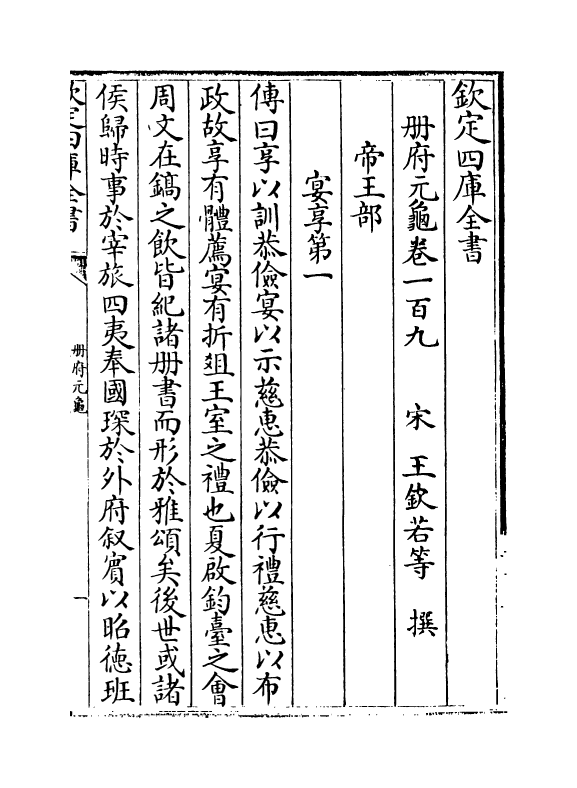 欽定四庫全書
册府元龜卷一百九　宋　王欽若等　撰
帝王部
宴享第一
傳曰享以訓恭儉宴以示慈惠恭儉以行禮慈惠以布
政故享有體薦宴有折俎王室之禮也夏啟鈞臺之會
周文在鎬之飲皆紀諸册書而形於雅頌矣後世或諸
侯歸時事於宰旅四夷奉國琛於外府叙賓以昭徳班
欽定四庫全書
册府元龜
一